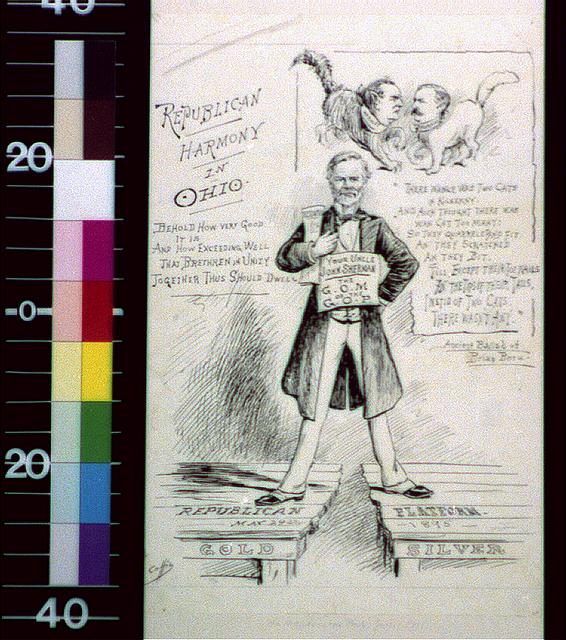 40
20
0
20
40
REPUBLICAN
HARMONY
IN
OHIO.
BEHOLD HOW VERY GOOD
IT IS
AND HOW EXCEEDING WELL
THAT BRETHREN IN UNITY
TOGETHER THUS SHOULD DWELL
"THERE WANCE WAS TWO CATS
IN KILKENNY.
AND AICH THOUGHT THERE WAS
WAN CAT TOO MANY:
SO THEY QUARRELED AND FIT
AN THEY SCRATCHED
AN THEY BIT.
TILL EXCEPT THEIR TOE NAILS
AN THE TIPS OF THEIR TAILS,
INSTID OF TWO CATS,
THERE WASN'T ANY."
Ancient Ballad of
Brian Boru
YOUR UNCLE
JOHN SHERMAN
THE
G.O.M
OF THE
G.O.P.
REPUBLICAN PLATFORM.
MAY 28TH 1895
GOLD SILVER
Coffin